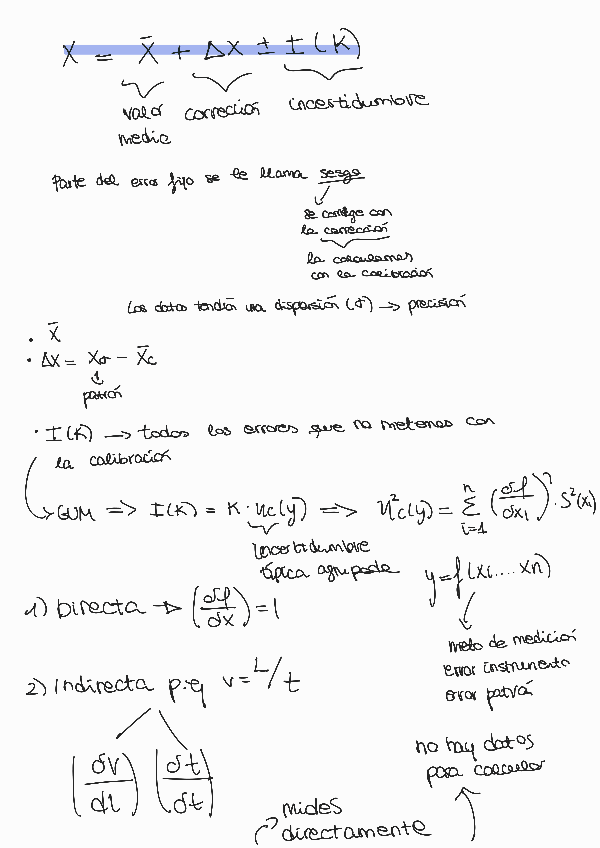 X = X̄ + ΔX ± I(K)
valor medio
corrección
incertidumbre
Parte del error fijo se le llama sesgo
se corrige con
la corrección
la calculamos
con la calibración
Los datos tendrán una dispersión (σ) → precisión
· X̄
· ΔX = X₀ − X̄c
patrón
· I(K) → todos los errores que no metemos con
la calibración
GUM ⇒ I(K) = K · uc(y) ⇒ u²c(y) = Σ i=1 n (δf/δxi)² · S²(xi)
incertidumbre
típica agrupada
y = f(xi....xn)
1) Directa → (δf/δx) = 1
meto de medición
error instrumento
error patrón
2) Indirecta p.ej v = L/t
(δv/δl) (δt/δt)
no hay datos
para calcular
mides
directamente